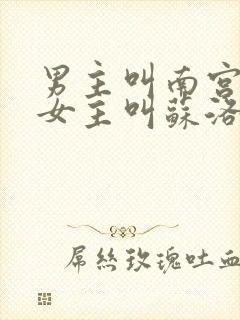 男主叫南宫
女主叫蘇洛
屌絲玫瑰吐血